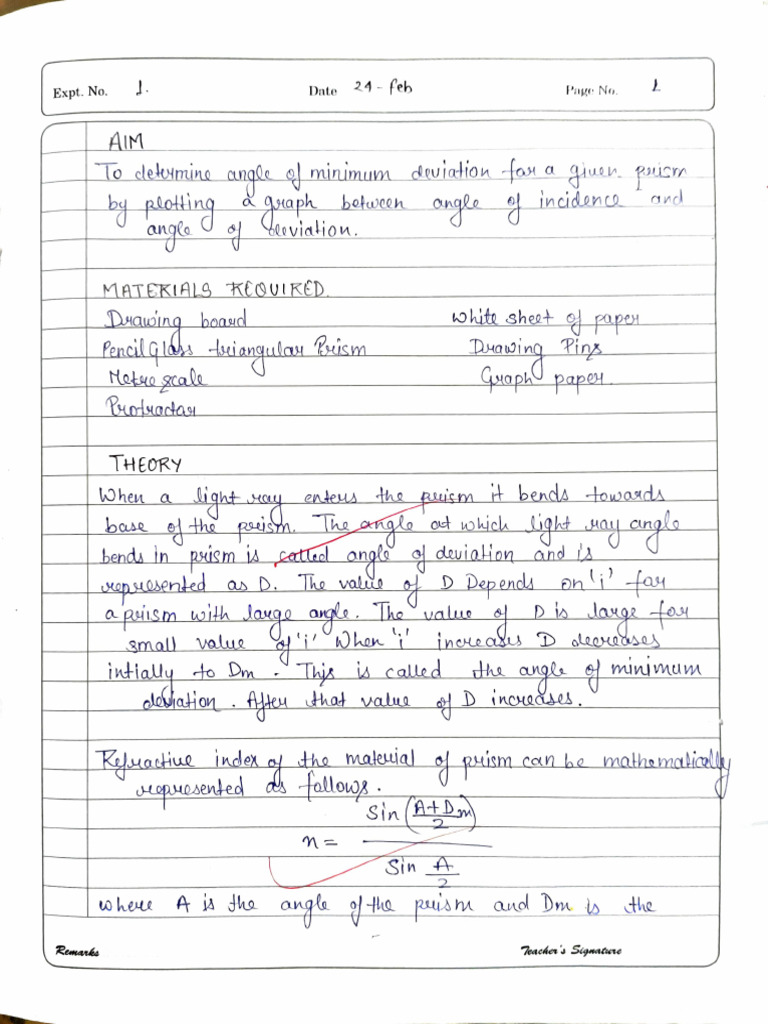 Expt. No. 1. Date 24 - Feb Page No. 1
AIM
To determine angle of minimum deviation for a given prism
by plotting a graph between angle of incidence and
angle of deviation.
MATERIALS REQUIRED.
Drawing board White sheet of paper
Pencil Glass triangular Prism Drawing Pins
Metre scale Graph paper.
Protractor
THEORY
When a light ray enters the prism it bends towards
base of the prism. The angle at which light ray angle
bends in prism is called angle of deviation and is
represented as D. The value of D Depends on 'i' for
a prism with large angle. The value of D is large for
small value of 'i' When 'i' increases D decreases
intially to Dm. This is called the angle of minimum
deviation. After that value of D increases.
Refractive index of the material of prism can be mathematically
represented as follows.
n = Sin ((A+Dm)/2) / Sin (A/2)
where A is the angle of the prism and Dm is the
Remarks Teacher's Signature